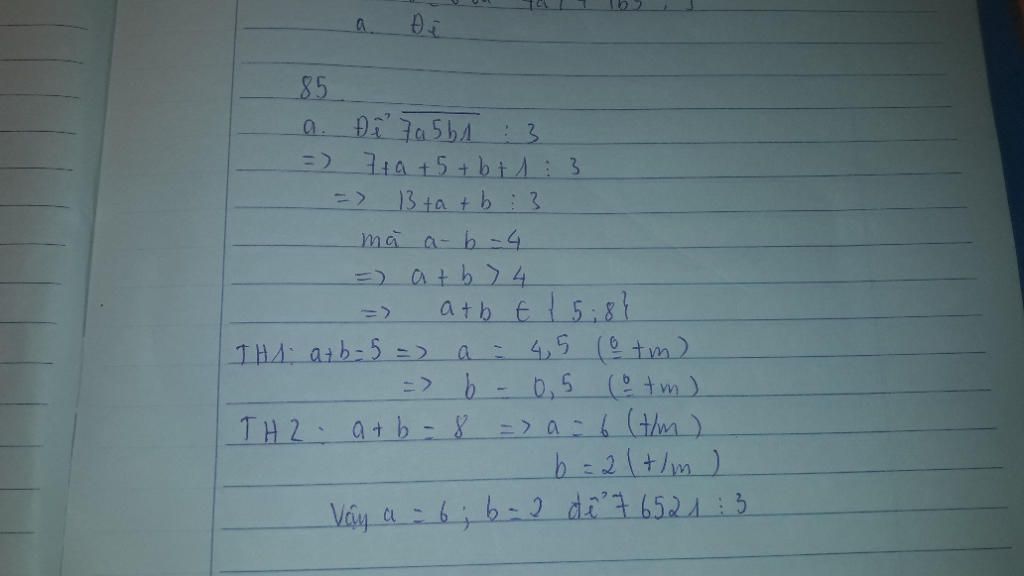 a. Để
85
a. Để 7a5b1 ⋮ 3
=> 7+a+5+b+1 ⋮ 3
=> 13+a+b ⋮ 3
mà a-b=4
=> a+b > 4
=> a+b ∈ {5;8}
TH1: a+b=5 => a = 4,5 (o̲ t m)
=> b = 0,5 (o̲ t m)
TH2: a+b = 8 => a = 6 (t/m)
b = 2 (t/m)
Vậy a = 6; b=2 để 76521 ⋮ 3